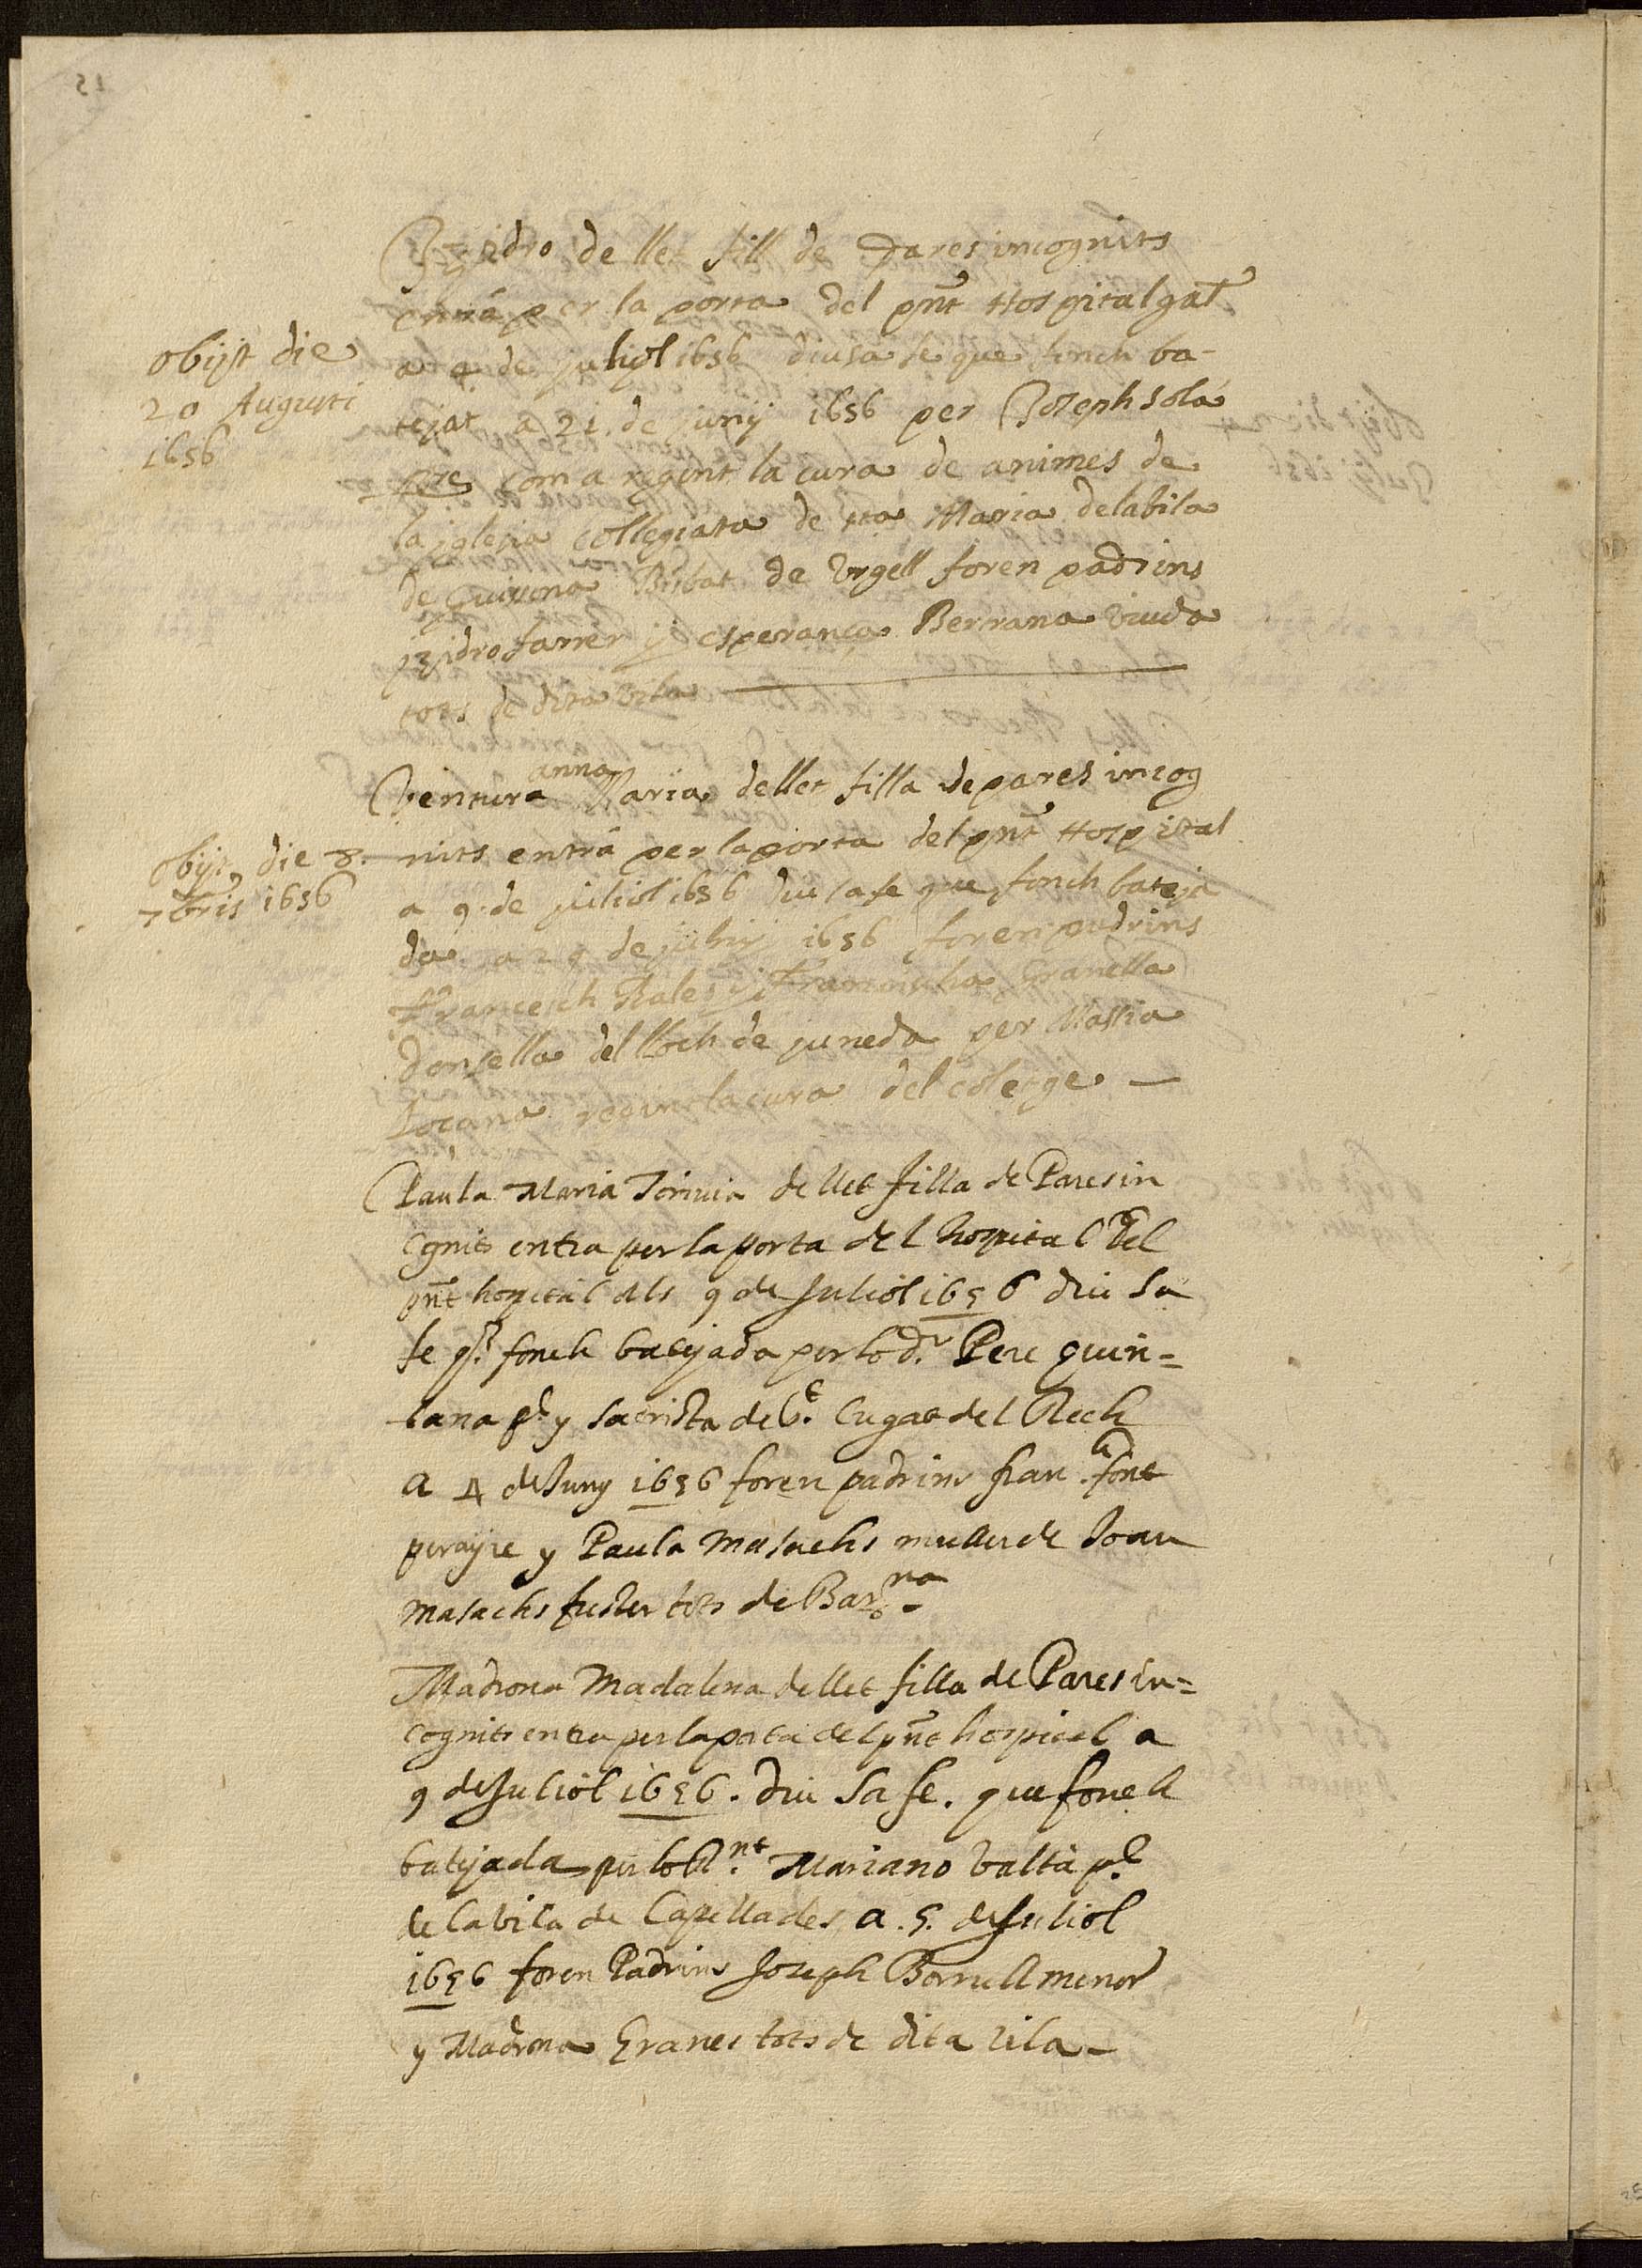 Izidro de llet fill de Pares incognits
entrá per la porta del pnt Hospital gal
obijt die
20 Augusti
1656
a 4 de juliol 1656 diu sa fe que fonch ba-
tejat a 21 de juny 1656 per Joseph sola
pre com a regent la cura de animes de
la iglesia collegiata de sta Maria de la bila
de Guisona Bisbat de Urgell foren padrins
izidro farrer y esperança Berrana viuda
tots de dita vila
anna
Ventura Maria de llet filla de pares incog
obijt die 8.
7bris 1656
nits entrá per la porta del pnt Hospital
a 9 de juliol 1656 diu sa fe que fonch bateja
da a 29 de juny 1656 foren padrins
Francesch Rales y Granella
Donsella del lloch de juneda per Massia
Loçana regint la cura del coletge
Paula Maria de llet filla de Pares in
cognits entra per la porta del hospital del
pnt hospital als 9 de Juliol 1656 diu sa
fe q. fonch batejada per lo dr. Pere quin=
tana pe. y sacrista de St. Cugat del Rech
a 4 de Juny 1656 foren padrins fran.ch font
perayre y Paula Masachs muller de Joan
masachs fuster tots de Bar.na
Madrona Madalena de llet filla de Pares in=
cognits entra per la porta del pnt hospital a
9 de Juliol 1656. diu sa fe. que fonch
batejada per lo R.nt Mariano valta pe.
de la vila de Capellades a .5. de Juliol
1656 foren Padrins Joseph Borrull menor
y Madrona Granes tots de dita vila